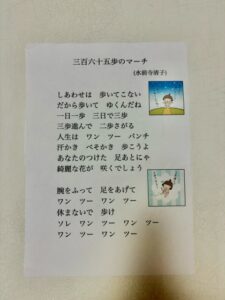 三百六十五歩のマーチ
(水前寺清子)
しあわせは 歩いてこない
だから歩いて ゆくんだね
一日一歩 三日で三歩
三歩進んで 二歩さがる
人生は ワン ツー パンチ
汗かき べそかき 歩こうよ
あなたのつけた 足あとにゃ
綺麗な花が 咲くでしょう
腕をふって 足をあげて
ワン ツー ワン ツー
休まないで 歩け
ソレ ワン ツー ワン ツー
ワン ツー ワン ツー